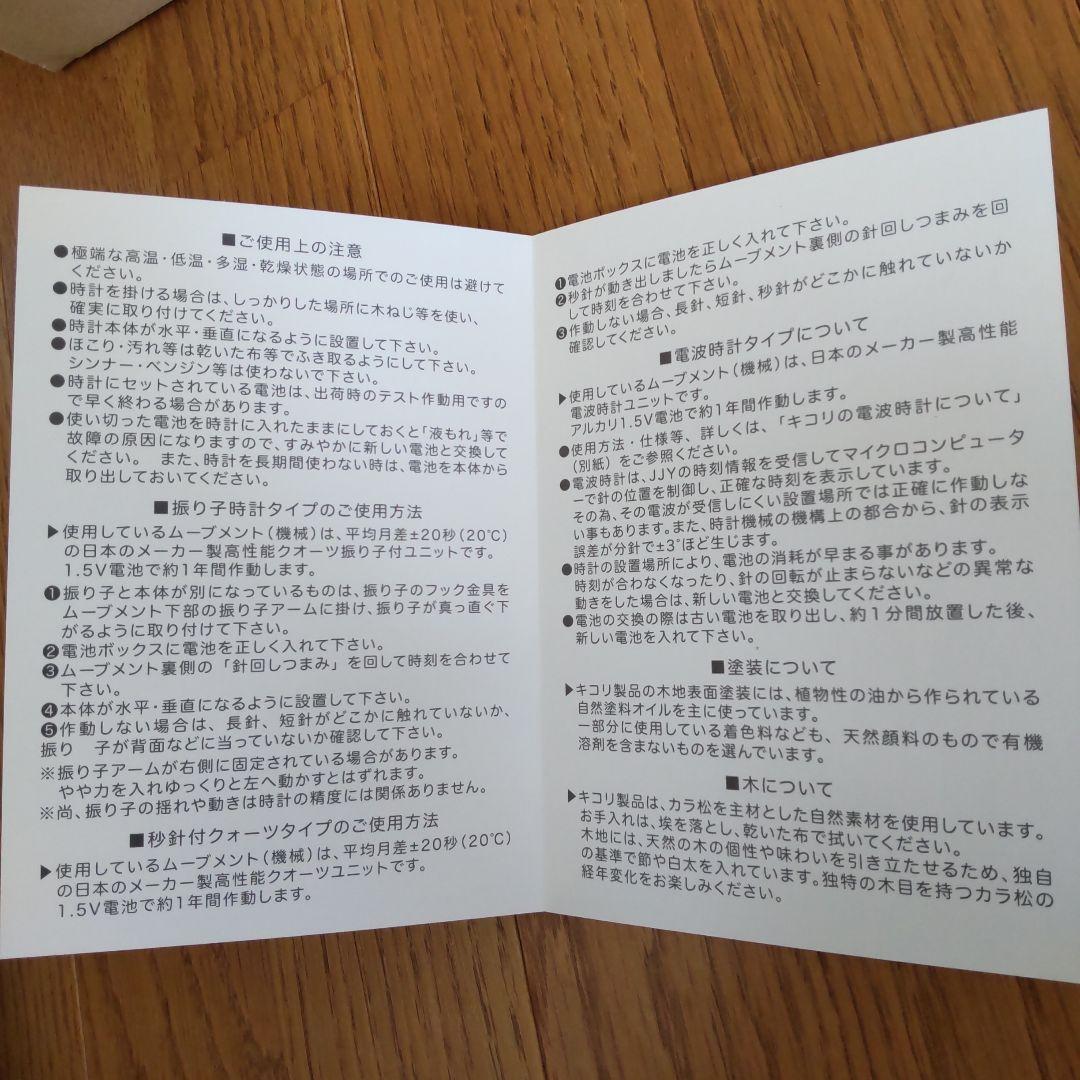 ■ご使用上の注意
●極端な高温・低温・多湿・乾燥状態の場所でのご使用は避けて
ください。
●時計を掛ける場合は、しっかりした場所に木ねじ等を使い、
確実に取り付けてください。
●時計本体が水平・垂直になるように設置して下さい。
●ほこり・汚れ等は乾いた布等でふき取るようにして下さい。
シンナー・ベンジン等は使わないで下さい。
●時計にセットされている電池は、出荷時のテスト作動用ですの
で早く終わる場合があります。
●使い切った電池を時計に入れたままにしておくと「液もれ」等で
故障の原因になりますので、すみやかに新しい電池と交換して
ください。 また、時計を長期間使わない時は、電池を本体から
取り出しておいてください。
■振り子時計タイプのご使用方法
▶使用しているムーブメント(機械)は、平均月差±20秒(20℃)
の日本のメーカー製高性能クオーツ振り子付ユニットです。
1.5V電池で約1年間作動します。
❶振り子と本体が別になっているものは、振り子のフック金具を
ムーブメント下部の振り子アームに掛け、振り子が真っ直ぐ下
がるように取り付けて下さい。
❷電池ボックスに電池を正しく入れて下さい。
❸ムーブメント裏側の「針回しつまみ」を回して時刻を合わせて
下さい。
❹本体が水平・垂直になるように設置して下さい。
❺作動しない場合は、長針、短針がどこかに触れていないか、
振り 子が背面などに当っていないか確認して下さい。
※振り子アームが右側に固定されている場合があります。
やや力を入れゆっくりと左へ動かすとはずれます。
※尚、振り子の揺れや動きは時計の精度には関係ありません。
■秒針付クォーツタイプのご使用方法
▶使用しているムーブメント(機械)は、平均月差±20秒(20℃)
の日本のメーカー製高性能クオーツユニットです。
1.5V電池で約1年間作動します。
❶電池ボックスに電池を正しく入れて下さい。
❷秒針が動き出しましたらムーブメント裏側の針回しつまみを回
して時刻を合わせて下さい。
❸作動しない場合、長針、短針、秒針がどこかに触れていないか
確認してください。
■電波時計タイプについて
▶使用しているムーブメント(機械)は、日本のメーカー製高性能
電波時計ユニットです。
アルカリ1.5V電池で約1年間作動します。
●使用方法・仕様等、詳しくは、「キコリの電波時計について」
(別紙)をご参照ください。
●電波時計は、JJYの時刻情報を受信してマイクロコンピュータ
ーで針の位置を制御し、正確な時刻を表示しています。
その為、その電波が受信しにくい設置場所では正確に作動しな
い事もあります。また、時計機械の機構上の都合から、針の表示
誤差が分針で±3°ほど生じます。
●時計の設置場所により、電池の消耗が早まる事があります。
時刻が合わなくなったり、針の回転が止まらないなどの異常な
動きをした場合は、新しい電池と交換してください。
●電池の交換の際は古い電池を取り出し、約1分間放置した後、
新しい電池を入れて下さい。
■塗装について
▶キコリ製品の木地表面塗装には、植物性の油から作られている
自然塗料オイルを主に使っています。
一部分に使用している着色料なども、天然顔料のもので有機
溶剤を含まないものを選んでいます。
■木について
▶キコリ製品は、カラ松を主材とした自然素材を使用しています。
お手入れは、埃を落とし、乾いた布で拭いてください。
木地には、天然の木の個性や味わいを引き立たせるため、独自
の基準で節や白太を入れています。独特の木目を持つカラ松の
経年変化をお楽しみください。